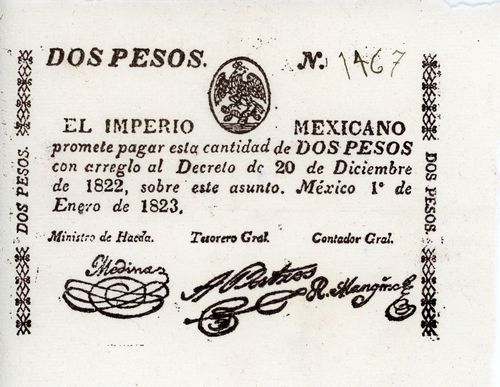 DOS PESOS. N. 1467
EL IMPERIO MEXICANO
promete pagar esta cantidad de DOS PESOS
con arreglo al Decreto de 20 de Diciembre
de 1822, sobre este asunto. México 1º de
Enero de 1823.
Ministro de Hacda. Tesorero Gral. Contador Gral.
Medina
R. Mangino
DOS PESOS.
DOS PESOS.